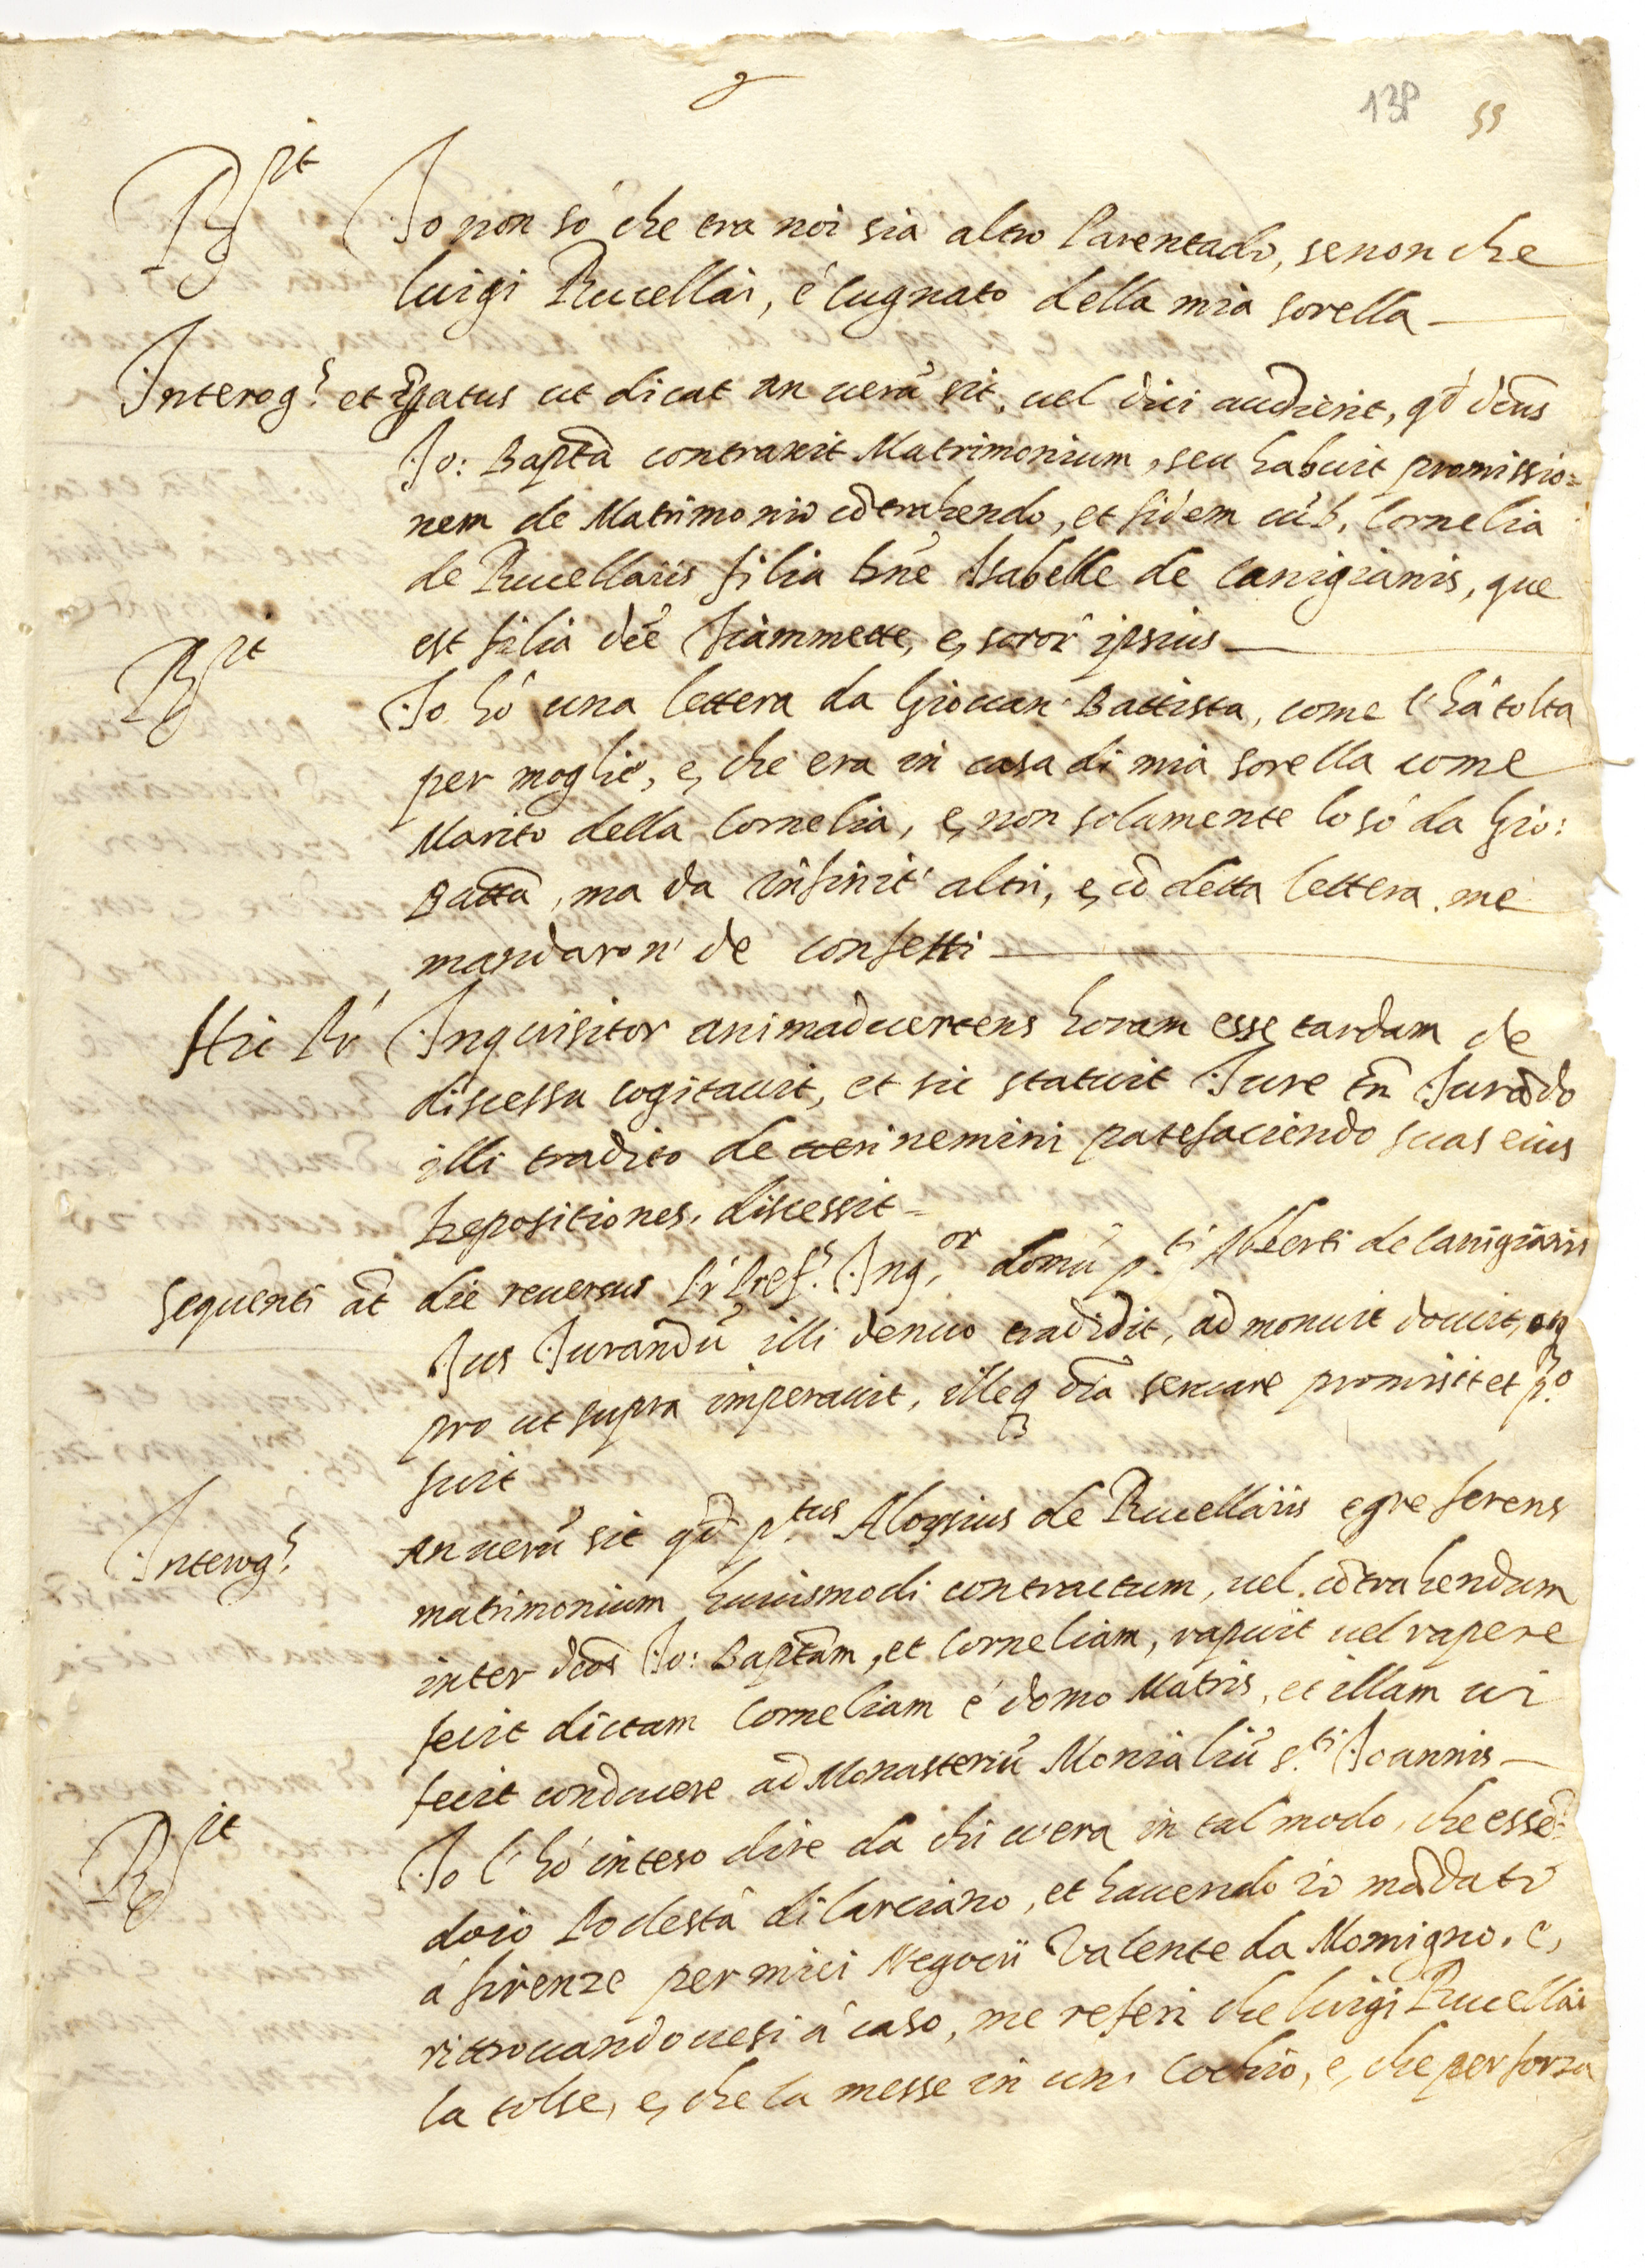 138 55
R.it Io non sò che tra noi sia altro Parentado, se non che
luigi Rucellai, è Cugnato della mia sorella
Interog.s et ... ut dicat an uerũ sit, uel dici audierit, qđ dc̃us
Io: Bapt̃a contraxit Matrimonium, seu habuit promissio=
nem de Matrimonio cõtrahendo, et fidem cũ D. Cornelia
de Rucellaiis filia Dn̄e Isabelle de Canigianis, que
est filia dc̃e Fiammette, e, soror ipsius
R.it Io hò una lettera da Giouan Battista, come l'hà tolta
per moglie, e, che era in casa di mia sorella come
Marito della Cornelia, e, non solamente lo sò da Gio:
Batt̃a, ma da infinit' altri, e, cõ detta lettera me
mandaron' de confetti
Hic R.' Inquisitor animaduertens horam esse tardam de
discessu cogitauit, et sic statuit Iure tñ Iurãdo
illi tradito de nemini patefaciendo suas eius
Depositiones, discessit
Sequenti āt die reuersus R.' Pref.s Inq.or domũ p.ti Alberti de Canigianis
Ius Iurandũ illi denuo tradidit, admonuit docuit,
pro ut supra imperauit, illeq3 õia seruare promisit et p.o
fuit
Interog.s An uerũ sit qđ p.tus Aloysius de Rucellaiis egre ferens
matrimonium huiusmodi contractum, uel cõtrahendum
inter dc̃os Io: Bapt̃am, et Corneliam, rapuit uel rapere
fecit dictam Corneliam è domo Matris, et illam ui
fecit conducere ad Monasteriũ Monialiũ S.ti Ioannis
R.it Io l'hò inteso dire da chi u'era in tal modo, che essẽ=
do io Podestà di Larciano, et hauendo io mãdato
à firenze per miei Negocii Valente da Momigno, e,
ritrouandouesi à caso, me referi che luigi Rucellai
la tolse, e, che la messe in un' Cochio, e, che per forza